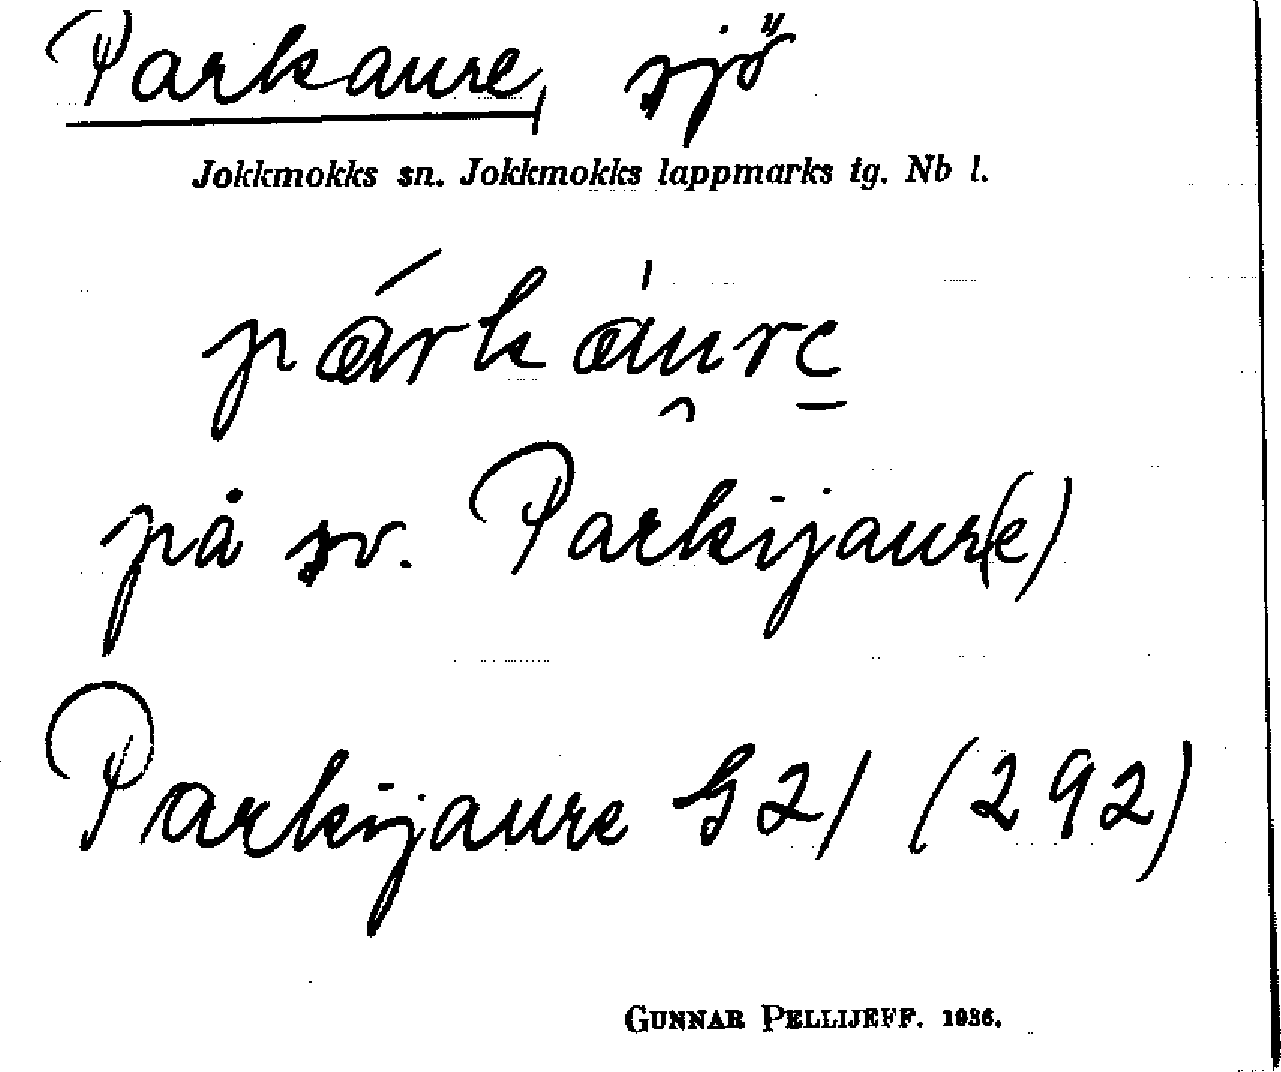 Parkaure, sjö
Jokkmokks sn. Jokkmokks lappmarks tg. Nb l.
párkàu̯re̱
på sv. Parkijaur(e)
Parkijaure G21 (292)
GUNNAR PELLIJEFF. 1936.